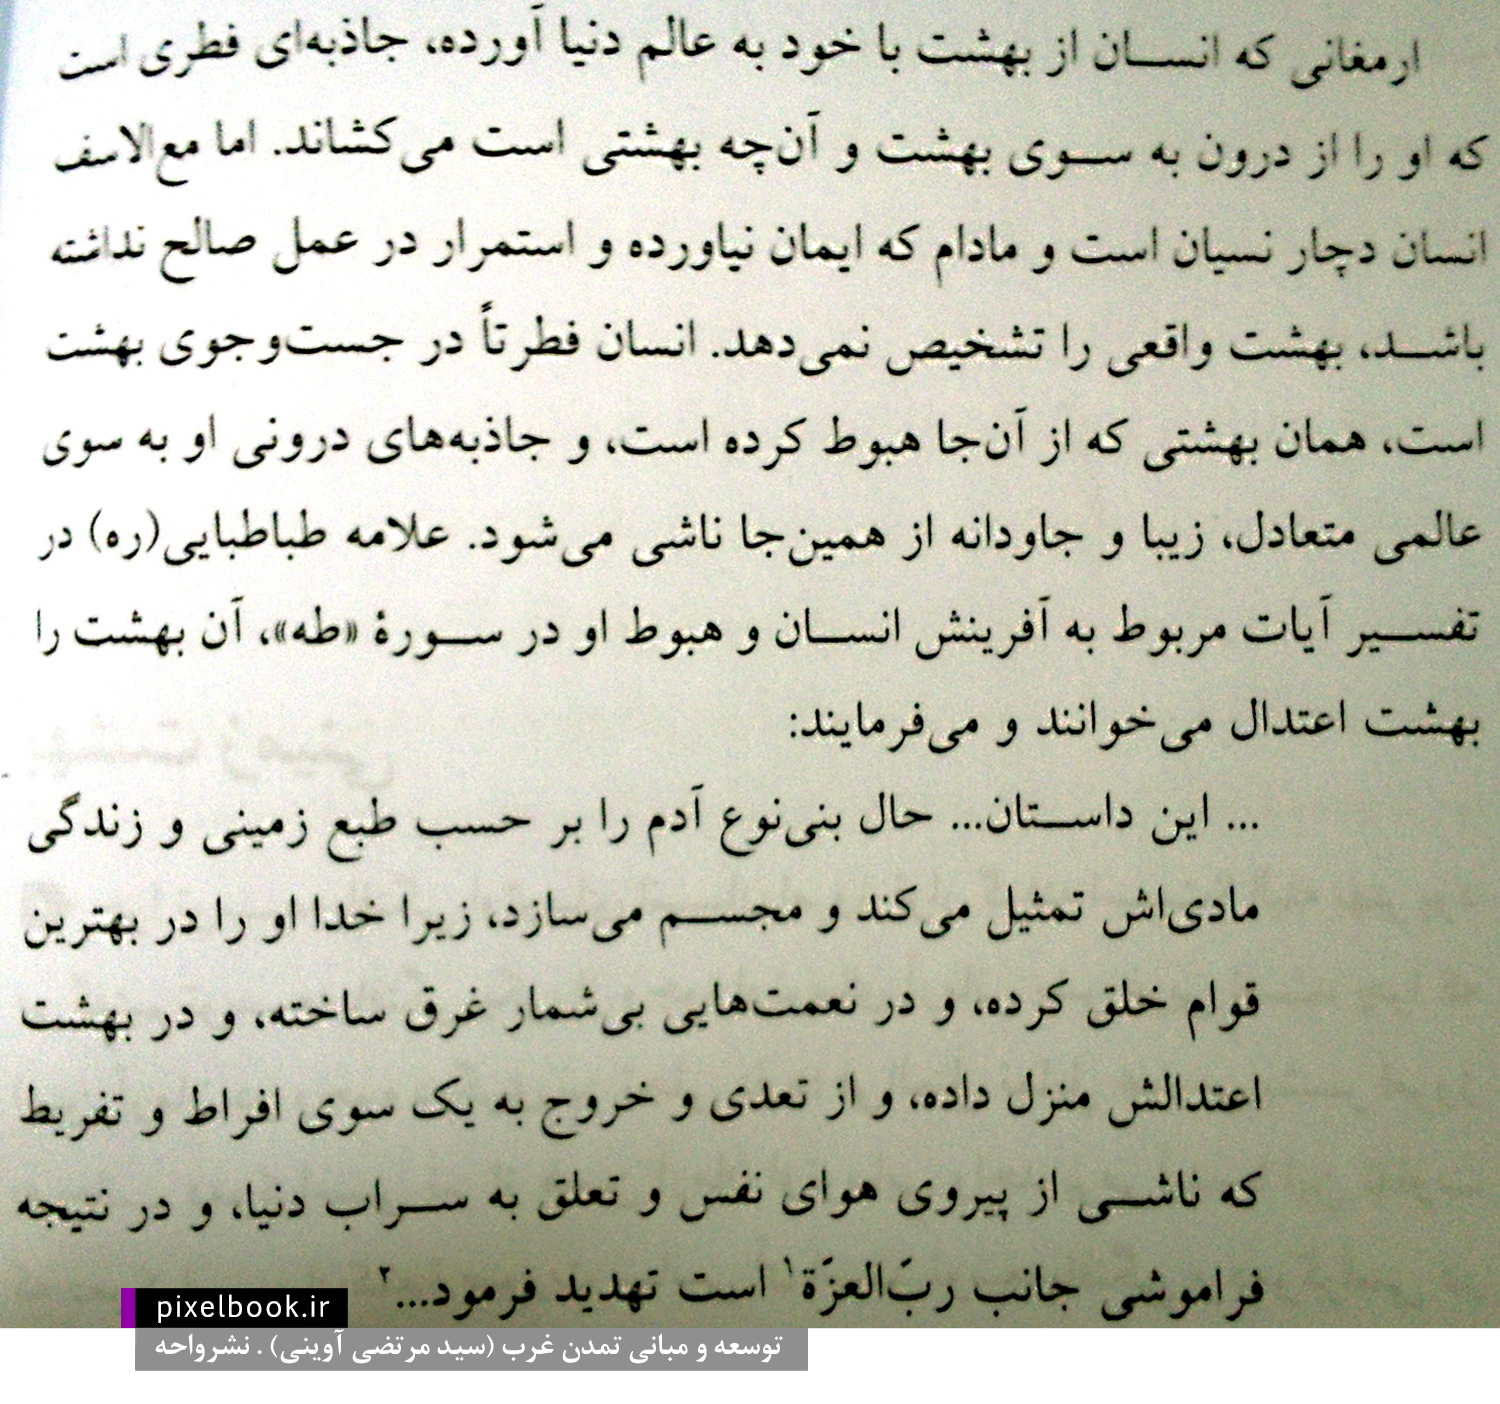 ارمغانی که انسان از بهشت با خود به عالم دنیا آورده، جاذبه‌ای فطری است
که او را از درون به سوی بهشت و آن‌چه بهشتی است می‌کشاند. اما مع‌الاسف
انسان دچار نسیان است و مادام که ایمان نیاورده و استمرار در عمل صالح نداشته
باشد، بهشت واقعی را تشخیص نمی‌دهد. انسان فطرتاً در جست‌وجوی بهشت
است، همان بهشتی که از آن‌جا هبوط کرده است، و جاذبه‌های درونی او به سوی
عالمی متعادل، زیبا و جاودانه از همین‌جا ناشی می‌شود. علامه طباطبایی(ره) در
تفسیر آیات مربوط به آفرینش انسان و هبوط او در سورهٔ «طه»، آن بهشت را
بهشت اعتدال می‌خوانند و می‌فرمایند:
... این داستان... حال بنی‌نوع آدم را بر حسب طبع زمینی و زندگی
مادی‌اش تمثیل می‌کند و مجسم می‌سازد، زیرا خدا او را در بهترین
قوام خلق کرده، و در نعمت‌هایی بی‌شمار غرق ساخته، و در بهشت
اعتدالش منزل داده، و از تعدی و خروج به یک سوی افراط و تفریط
که ناشی از پیروی هوای نفس و تعلق به سراب دنیا، و در نتیجه
فراموشی جانب ربّ‌العزّة۱ است تهدید فرمود...۲
pixelbook.ir
توسعه و مبانی تمدن غرب (سید مرتضی آوینی) . نشرواحه